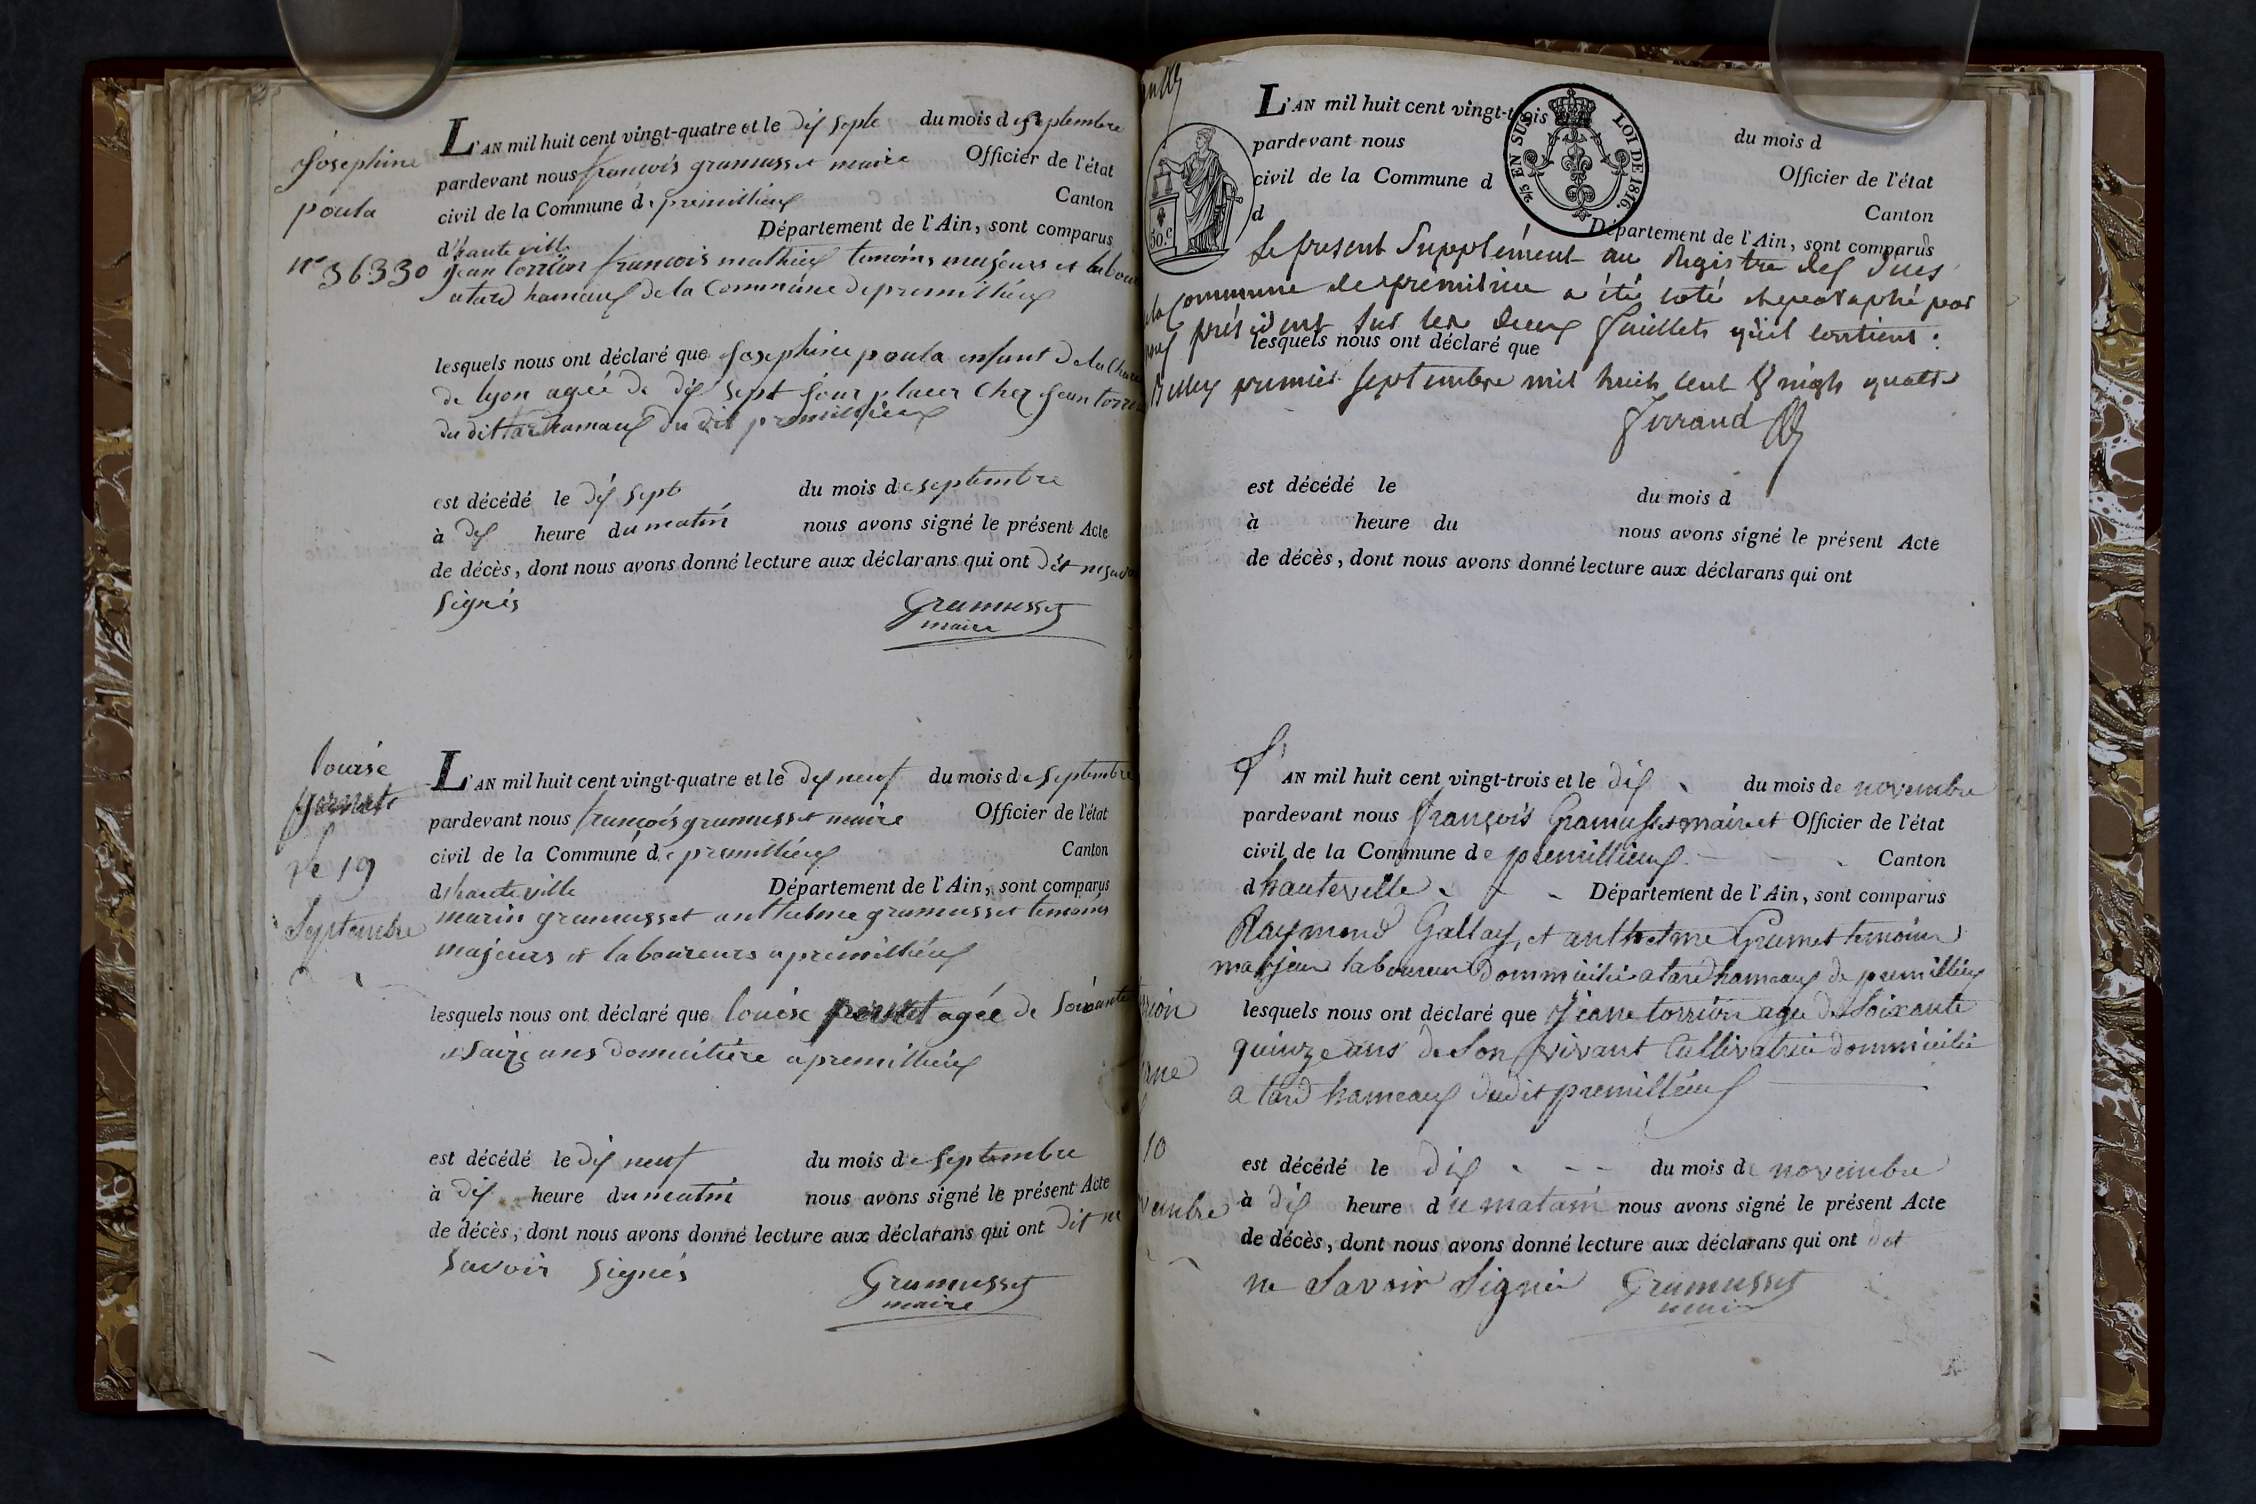 Josephine
poula
n° 36330
L'AN mil huit cent vingt-quatre et le dix septe du mois de septembre
pardevant nous francois gramusset maire Officier de l'état
civil de la Commune de premillieux Canton
d'hauteville Département de l'Ain, sont comparus
jean torrion francois mathieu temoins majeurs et labour
a tard hameaux de la Commune de premillieux
lesquels nous ont déclaré que Josephine poula enfant de la Char
de lyon agée de dix sept jour placer Chez jean torri
du dit tard hameaux du dit premillieux
est décédé le dix sept du mois de septembre
à dix heure du matin nous avons signé le présent Acte
de décès, dont nous avons donné lecture aux déclarans qui ont dit ne savo
signés Gramusset
maire
louise
le 19
Septembre
L'AN mil huit cent vingt-quatre et le dix neuf du mois de septembre
pardevant nous francois gramusset maire Officier de l'état
civil de la Commune de premillieux Canton
dhauteville Département de l'Ain, sont comparus
marin gramusset anthelme gramusset temoins
majeurs et laboureurs a premillieux
lesquels nous ont déclaré que louise pernet agée de soixante
et saize ans domicilière a premillieux
est décédé le dix neuf du mois de septembre
à dix heure du matin nous avons signé le présent Acte
de décès, dont nous avons donné lecture aux déclarans qui ont dit ne
savoir signés Gramusset
maire
L'AN mil huit cent vingt-trois
du mois d
pardevant nous Officier de l'état
civil de la Commune d Canton
d Département de l'Ain, sont comparus
2/5 EN SUS. LOI DE 1816.
50.c
Le present Supplément au Registre des Deces
de la Commune de premilieu a été coté et paraphé par
nous président sur les deux feuillets qu'il contient.
lesquels nous ont déclaré que
Belley premier Septembre mil huit cent vingt quatre
Ferrand
est décédé le du mois d
à heure du nous avons signé le présent Acte
de décès, dont nous avons donné lecture aux déclarans qui ont
rrion
anne
10
vembre
L'AN mil huit cent vingt-trois et le dix du mois de novembre
pardevant nous françois Gramusset maire et Officier de l'état
civil de la Commune de premillieux Canton
dhauteville Département de l'Ain, sont comparus
Raymond Gallay, et anthelme Grumet temoins
majeur laboureur dommicilié a tard hameaux de premillieux
lesquels nous ont déclaré que Jeane torrion agée de Soixante
quinze ans de Son vivant Cultivatrice dommicilié
a tard hameaux dudit premillieux
est décédé le dix du mois de novembre
à dix heure du matain nous avons signé le présent Acte
de décès, dont nous avons donné lecture aux déclarans qui ont dit
ne Savoir Signer Gramusset
maire